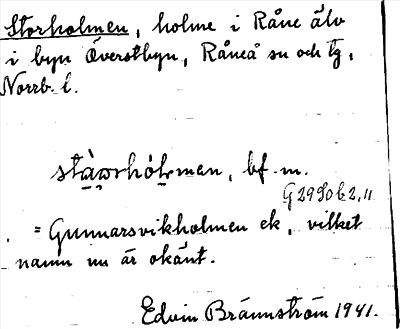 Storholmen, holme i Råne älv
i byn Överstbyn, Råneå sn och tg,
Norrb. l.
bf. m.
G 2990 b 2, 11
= Gunnarsvikholmen ek, vilket
namn nu är okänt.
Edvin Brännström 1941.